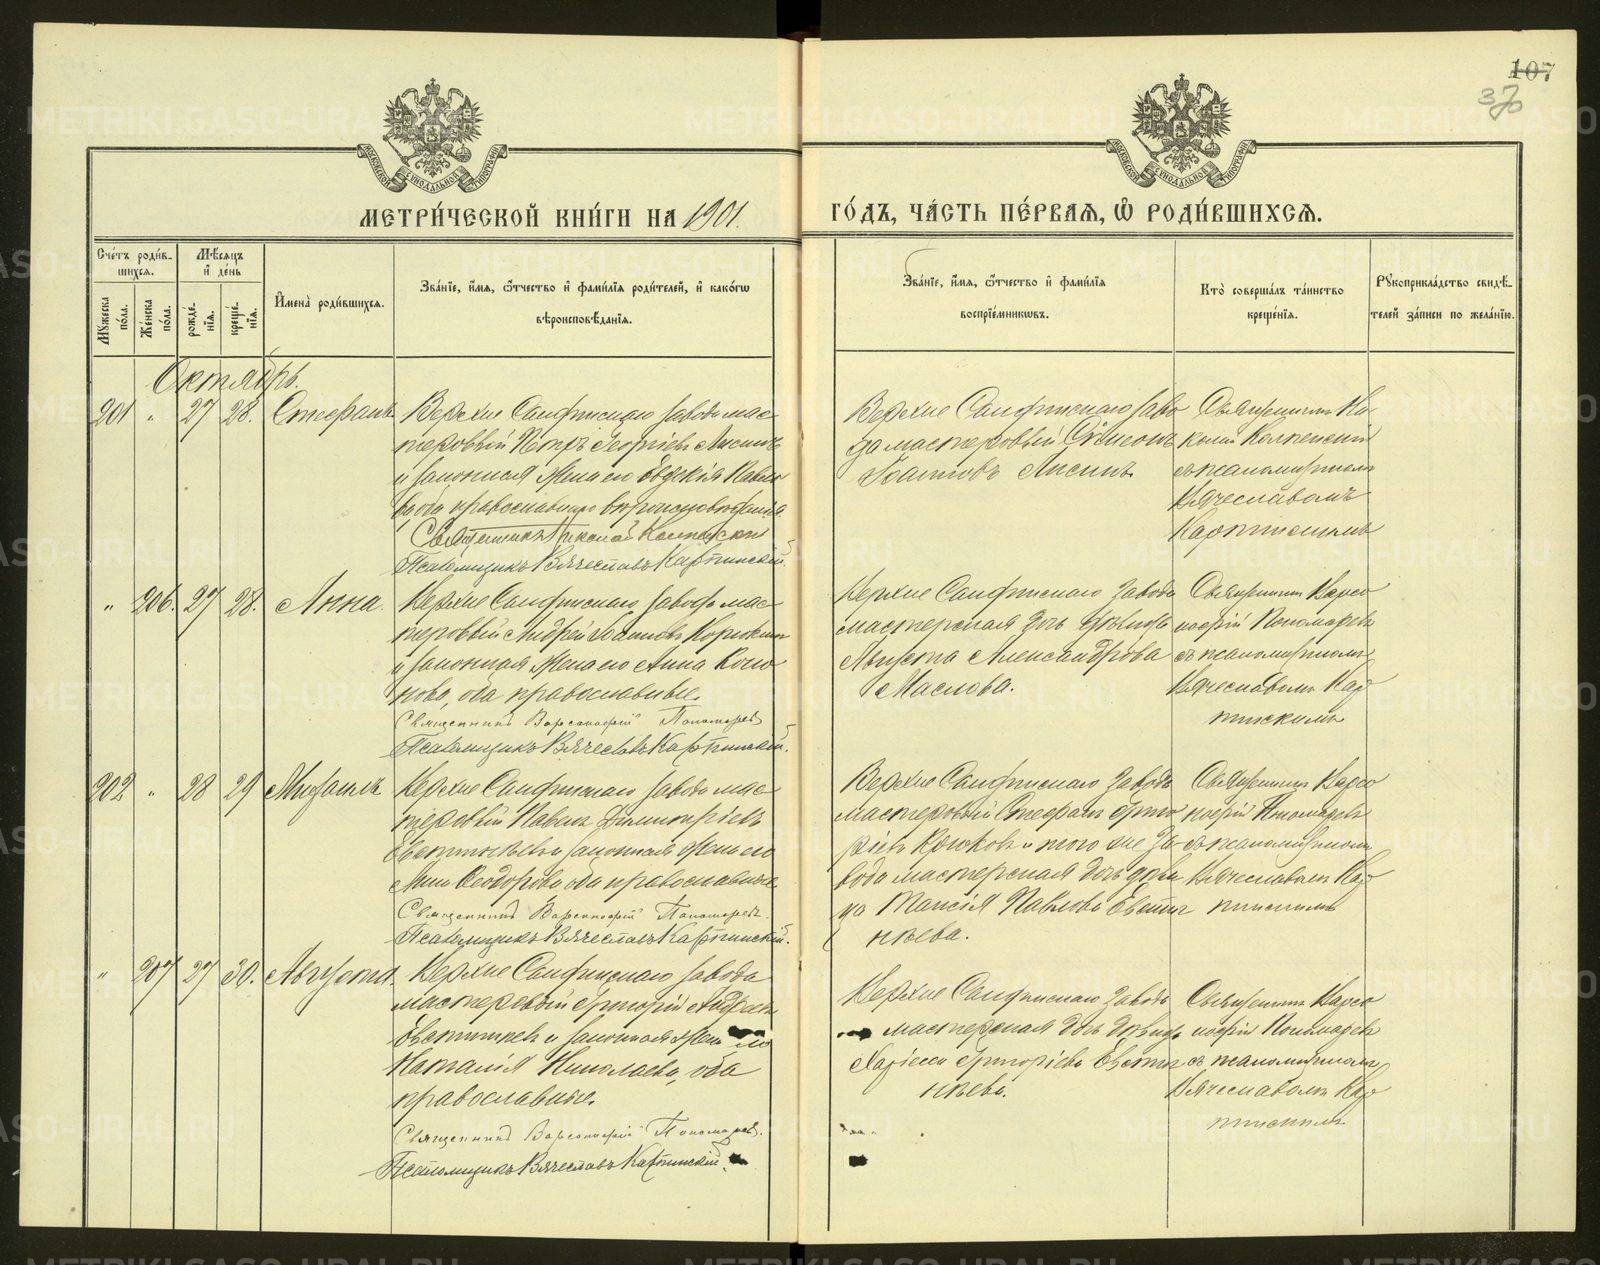 107
370
МЕТРИ́ЧЕСКОЙ КНИ́ГИ НА 1901
ГО́ДЪ, ЧА́СТЬ ПЕ́РВАѦ, Ѽ РОДИ́ВШИХСѦ.
Сче́тъ роди́в-
шихсѧ.
Мѣ́сѧцъ
и҆ де́нь
Мꙋ́жеска
по́ла.
Же́нска
по́ла.
рожде́-
нїѧ.
креще́-
нїѧ.
И҆мена̀ роди́вшихсѧ.
Зва́нїе, и҆́мѧ, ѻ҆́тчество и҆ фами́лїѧ роди́телей, и҆ како́гѡ
вѣроисповѣ́данїѧ.
Зва́нїе, и҆́мѧ, ѻ҆́тчество и҆ фами́лїѧ
воспрїе́мникѡвъ.
Кто̀ соверша́лъ та́инство
креще́нїѧ.
Рꙋкоприкла́дство свидѣ́-
телей за́писи по жела́нїю.
Октябрь.
201 " 27 28. Стефанъ
Верхне Салдинскаго завода мас
теровый Петръ Георгіевъ Лисинъ
и законная жена его Евдокія Павло
ва оба православнаго вѣроисповѣданія.
Священникъ Николай
Псаломщикъ Вячеславъ Карпинскій.
Верхне Салдинскаго заво
да мастеровый Симеонъ
Іоанновъ Лисинъ.
Священникъ Ни
колай
съ псаломщикомъ
Вячеславомъ
Карпинскимъ
" 206. 27 28. Анна.
Верхне Салдинскаго завода мас
теровый Андрей Іоанновъ
и законная жена его Анна
нова, оба православные.
Священникъ Варсонофій Пономаревъ
Псаломщикъ Вячеславъ Карпинскій.
Верхне Салдинскаго завода
мастерская дочь дѣвица
Августа Александрова
Маслова.
Священникъ Варсо
нофій Пономаревъ
съ псаломщикомъ
Вячеславомъ Кар
пинскимъ
202 " 28 29 Михаилъ
Верхне Салдинскаго завода мас
теровый Павелъ Димитріевъ
Евстигнѣевъ и законная жена его
Анна Ѳеодорова оба православные
Священникъ Варсонофій Пономаревъ.
Псаломщикъ Вячеславъ Карпинскій.
Верхне Салдинскаго завода
мастеровый Стефанъ Григо
рьевъ и того же за
вода мастерская дочь дѣви
ца Таисія Павлова Евстиг
нѣева.
Священникъ Варсо
нофій Пономаревъ
съ псаломщикомъ
Вячеславомъ Кар
пинскимъ
" 207 27 30. Августа.
Верхне Салдинскаго завода
мастеровый Григорій Андреевъ
Евстигнѣевъ и законная жена его
Наталія Николаева, оба
православные.
Священникъ Варсонофій Пономаревъ.
Псаломщикъ Вячеславъ Карпинскій.
Верхне Салдинскаго завода
мастерская дочь дѣвица
Григоріева Евстиг
нѣева.
Священникъ Варсо
нофій Пономаревъ
съ псаломщикомъ
Вячеславомъ Кар
пинскимъ
METRIKI.GASO-URAL.RU